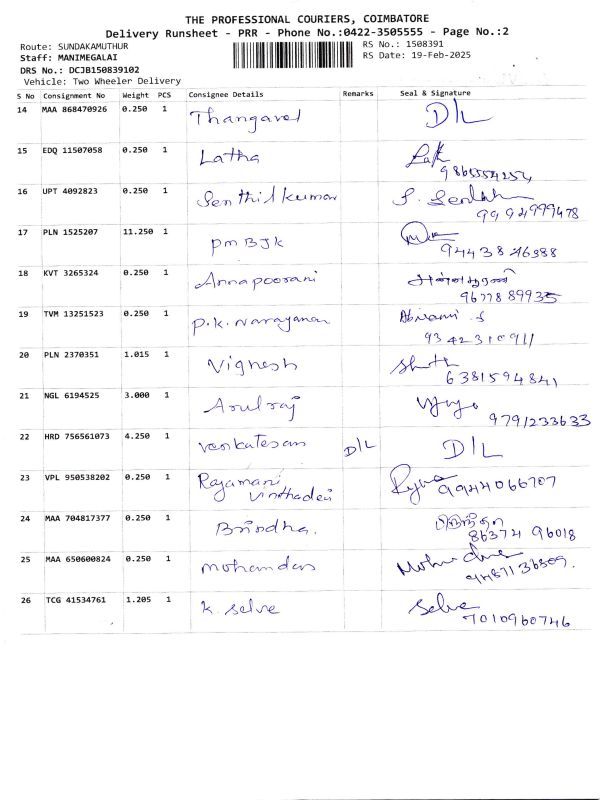 THE PROFESSIONAL COURIERS, COIMBATORE
Delivery Runsheet - PRR - Phone No.:0422-3505555 - Page No.:2
Route: SUNDAKAMUTHUR RS No.: 1508391
Staff: MANIMEGALAI RS Date: 19-Feb-2025
DRS No.: DCJB150839102
Vehicle: Two Wheeler Delivery
S No Consignment No Weight PCS Consignee Details Remarks Seal & Signature
14 MAA 868470926 0.250 1 Thangavel D/L
15 EDQ 11507058 0.250 1 Latha
16 UPT 4092823 0.250 1 Senthilkumar
9994999478
17 PLN 1525207 11.250 1 PMBJK
18 KVT 3265324 0.250 1 Annapoorani அன்னபூரணி
96778 89935
19 TVM 13251523 0.250 1 P.K. Narayanan Abirami S
9342310911
20 PLN 2370351 1.015 1 Vignesh
6381594841
21 NGL 6194525 3.000 1 Arulraj
9791233633
22 HRD 756561073 4.250 1 Venkatesan D/L D/L
23 VPL 950538202 0.250 1 Rajamani
9944066707
24 MAA 704817377 0.250 1 Brindha.
86374 96018
25 MAA 650600824 0.250 1 Mohandas
26 TCG 41534761 1.205 1 K. Selve Selve
7010960746